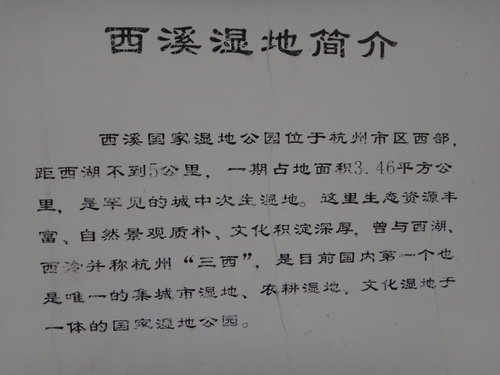 西溪湿地简介
西溪国家湿地公园位于杭州市区西部,
距西湖不到5公里，一期占地面积3.46平方公
里，是罕见的城中次生湿地。这里生态资源丰
富、自然景观质朴、文化积淀深厚，曾与西湖、
西泠并称杭州“三西”，是目前国内第一个也
是唯一的集城市湿地、农耕湿地、文化湿地于
一体的国家湿地公园。